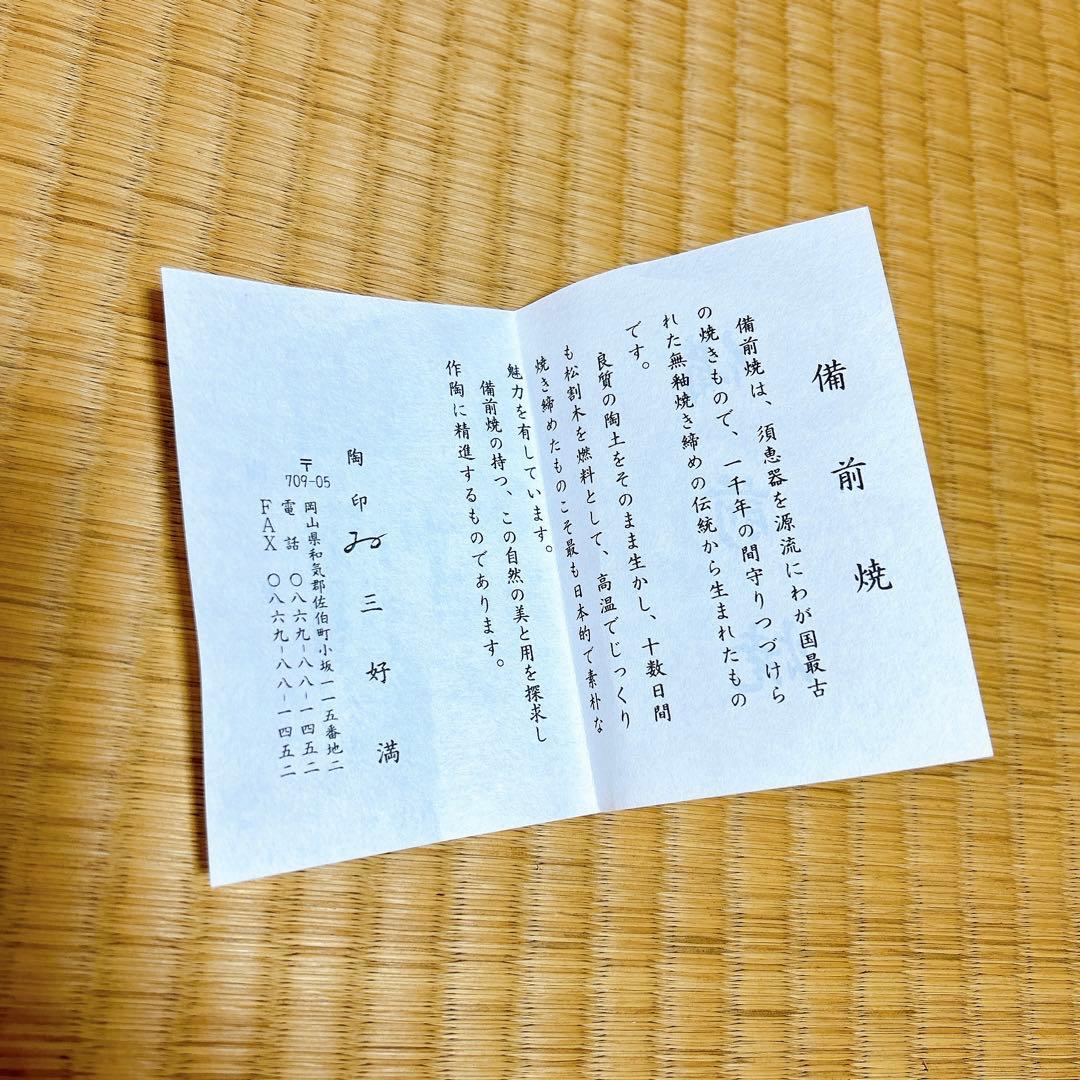 備前焼
備前焼は、須恵器を源流にわが国最古
の焼きもので、一千年の間守りつづけら
れた無釉焼き締めの伝統から生まれたもの
です。
良質の陶土をそのまま生かし、十数日間
も松割木を燃料として、高温でじっくり
焼き締めたものこそ最も日本的で素朴な
魅力を有しています。
備前焼の持つ、この自然の美と用を探求し
作陶に精進するものであります。
陶印 み 三好満
〒709-05
岡山県和気郡佐伯町小坂一一五番地二
電話 〇八六九-八八-一四五二
FAX 〇八六九-八八-一四五二